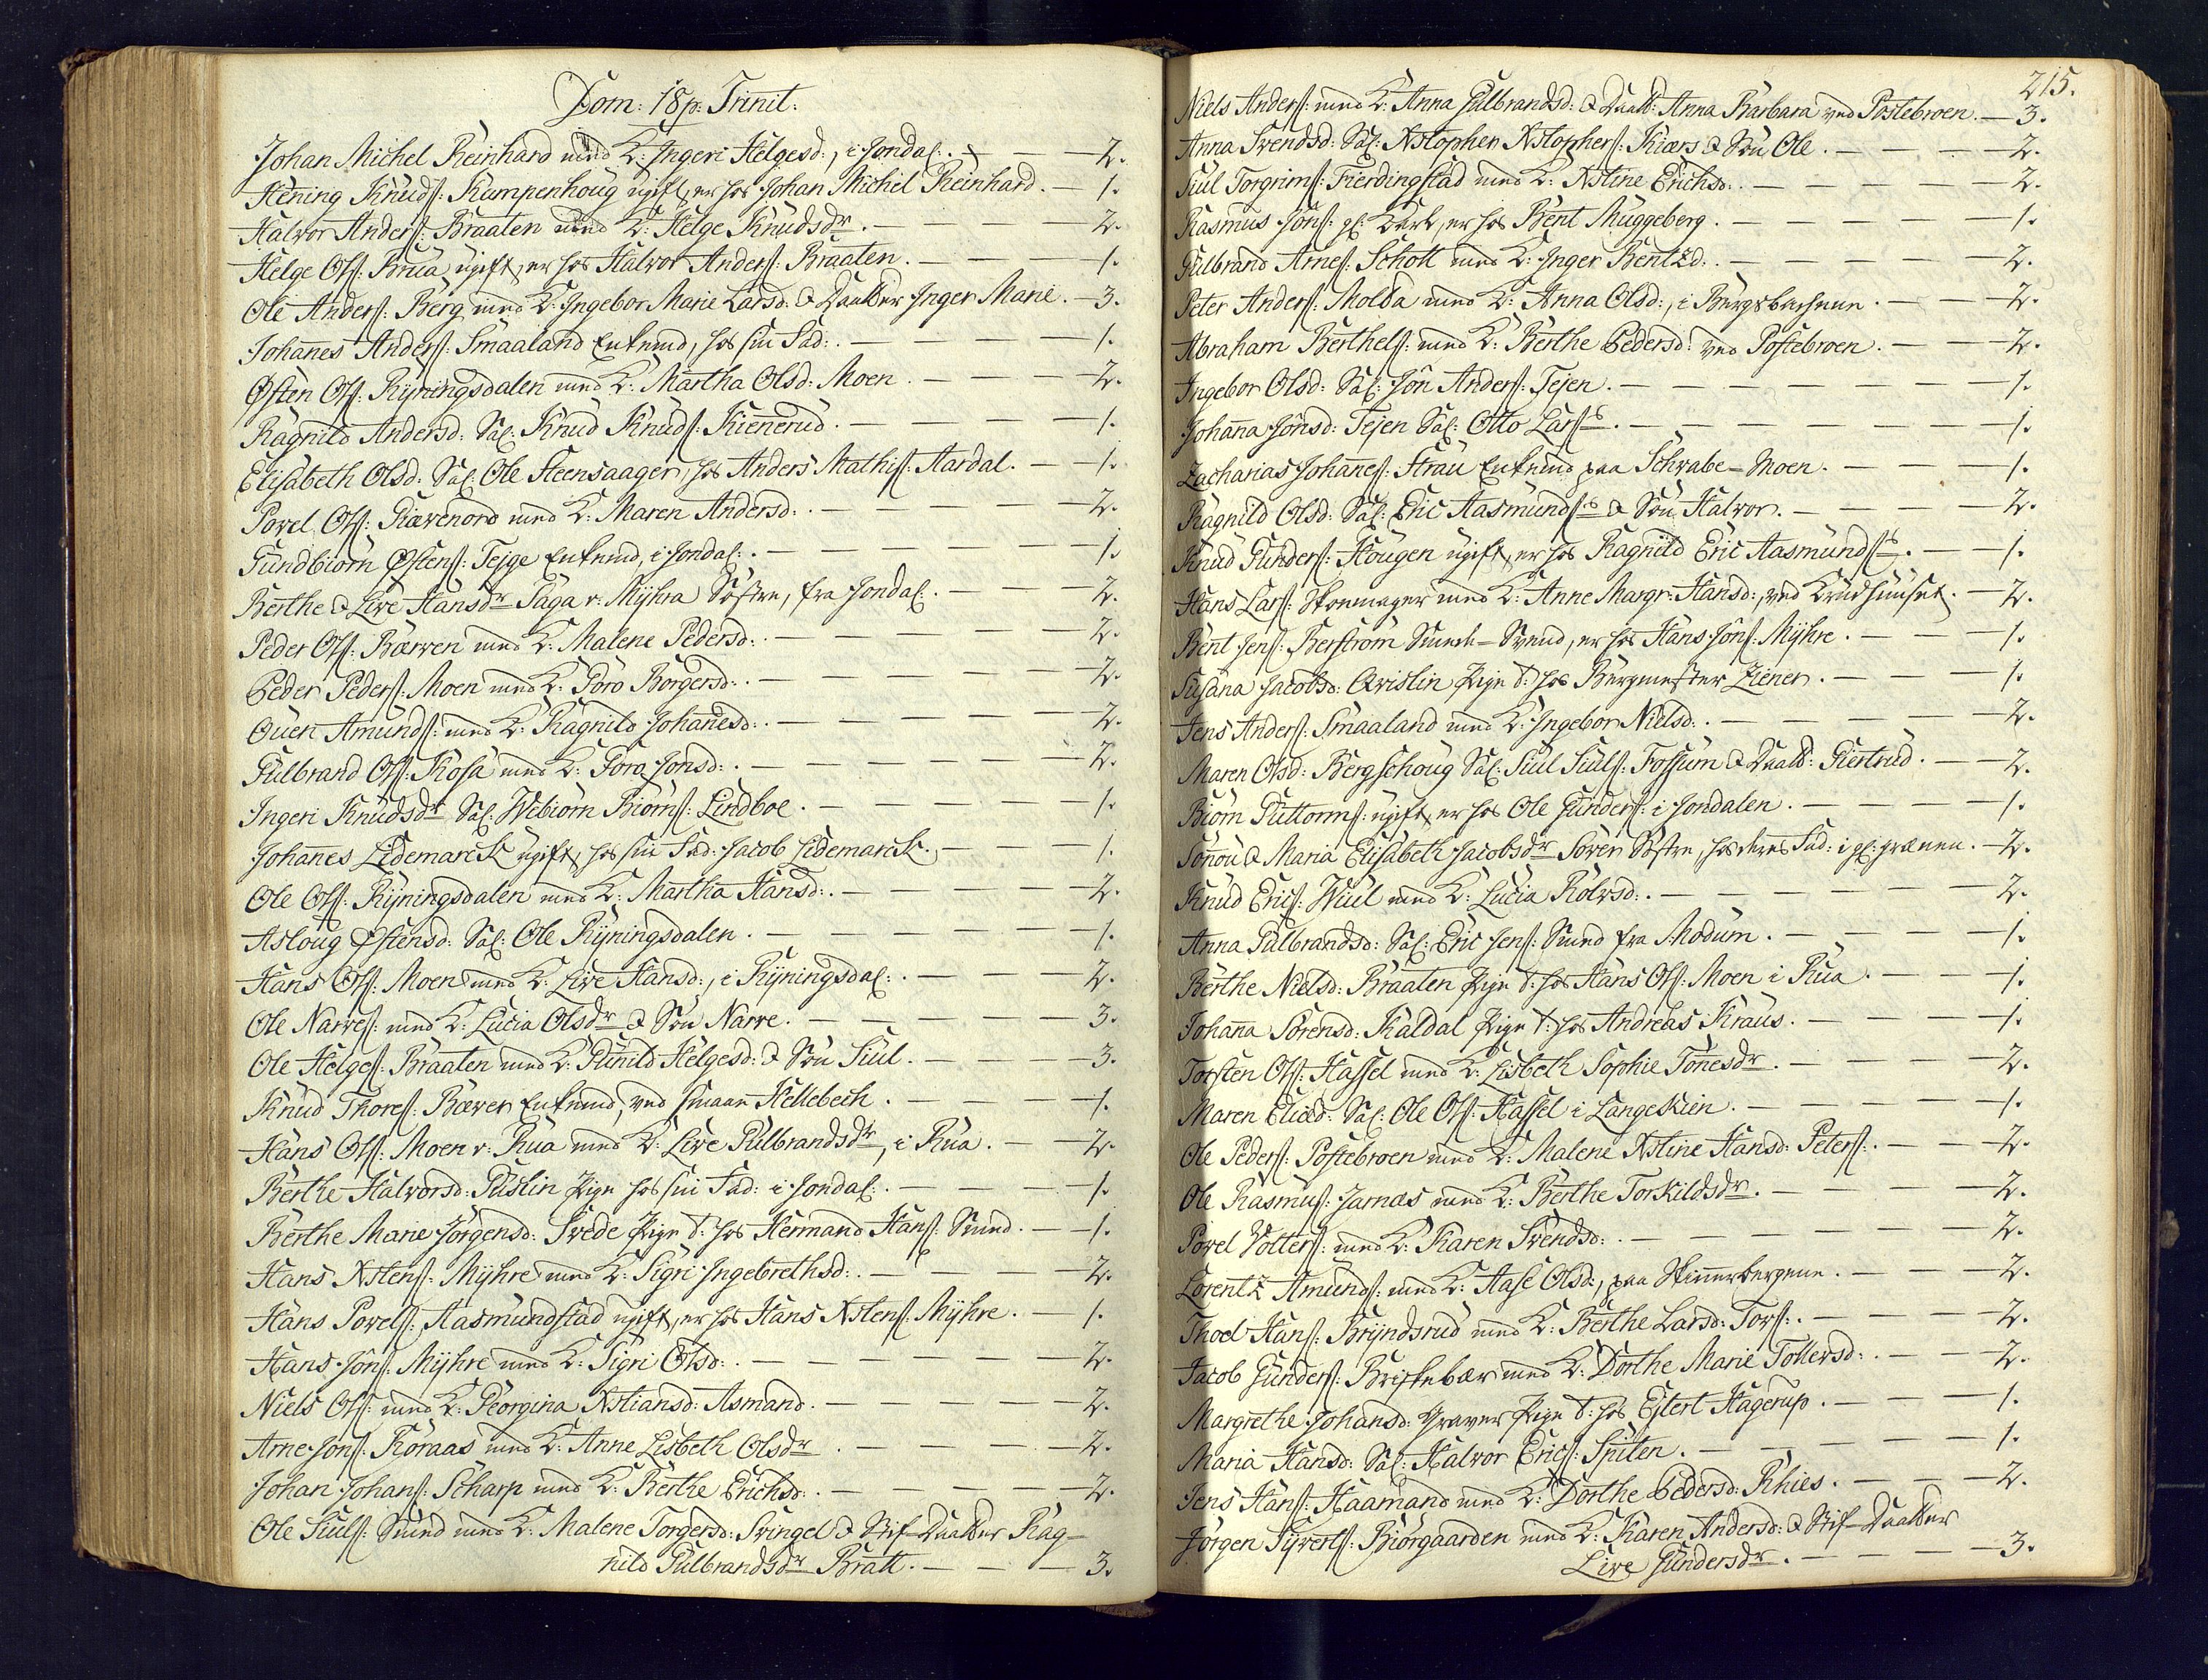 Dom: 18 p: Trinit:
Johan Michel Reinhard med K: Ingeri Helgesd:, i Jondal: . — — 2.
Hening Knuds: Kumpenhoug ugift, er hos Johan Michel Reinhard. — 1.
Halvor Anders: Braaten med K: Helge Knudsdr. — — — 2.
Helge Ols: Brua ugift, er hos Halvor Anders: Braaten. — — — 1.
Ole Anders: Berg med K: Ingebor Marie Larsd: & Daatter Inger Marie. — 3.
Johanes Anders: Smaaland Enkemd, hos sin Fad: . — — — 1.
Østen Ols: Ryningsdalen med K: Martha Olsd: Moen. — — — 2.
Ragnild Andersd: Sal: Knud Knuds: Kienerud. — — — 1.
Elisabeth Olsd: Sal: Ole Steensaager, hos Anders Mathis: Aardal. — 1.
Povel Ols: Riævenord med K: Maren Andersd: . — — — 2.
Gundbiorn Østens: Tejge Enkemd, i Jondal: . — — — 1.
Berthe & Live Hansdr Saga v: Myhra Søstre, fra Jondal: . — — 2.
Peder Ols: Bærven med K: Malene Pedersd: . — — — 2.
Peder Peders: Moen med K: Goro Borgersd: . — — — 2.
Ouen Amunds: med K: Ragnild Johanesd: . — — — 2.
Gulbrand Ols: Kosa med K: Goro Jonsd: . — — — 2.
Ingeri Knudsdr Sal: Webiorn Biorns: Lindboe. — — — 1.
Johanes Lidemarck ugift, hos sin Fad: Jacob Lidemarck. — — 1.
Ole Ols: Ryningsdalen med K: Martha Hansd: . — — — 2.
Asloug Østensd: Sal: Ole Ryningsdalen. — — — 1.
Hans Ols: Moen med K: Live Hansd:, i Ryningsdal: . — — 2.
Ole Narves: med K: Lucia Olsdr & Søn Narve. — — — 3.
Ole Helges: Braaten med K: Gunild Helgesd: & Søn Siul. — — 3.
Knud Thores: Bæver Enkemd, ved smaae Hellebech. — — 1.
Hans Ols: Moen v: Rua med K: Live Gulbrandsdr, i Rua. — — 2.
Berthe Halvorsd: Puslin Pige hos sin Fad: i Jondal: . — — 1.
Berthe Marie Jørgensd: Svede Pige t: hos Hermand Hans: Smed. — 1.
Hans Xstens: Myhre med K: Sigri Ingebrethsd: . — — 2.
Hans Povels: Aasmundstad ugift, er hos Hans Xstens: Myhre. — 1.
Hans Jons: Myhre med K: Sigri Olsd: . — — — 2.
Niels Ols: med K: Georgina Xstiansd: Asmand. — — — 2.
Arne Jons: Roraas med K: Anne Lisbeth Olsdr . — — — 2.
Johan Johans: Scharp med K: Berthe Erichsd: . — — — 2.
Ole Siuls: Smed med K: Malene Torgersd: Svingel & Stif-Daatter Rag-
nild Gulbrandsdr Bratt. — — — 3.
215.
Niels Anders: med K: Anna Gulbrandsd: & Daatt: Anna Barbara ved Postebroen. — 3.
Anna Svendsd: Sal: Xstopher Xstophers: Kiærs & Søn Ole. — — 2.
Siul Torgrims: Fierdingstad med K: Xstine Erichsd: . — — — 2.
Rasmus Jons: gl: Karl, er hos Bent Muggeberg. — — — 1.
Gulbrand Arnes: Schott med K: Inger Bentzd: . — — — 2.
Peter Anders: Molda med K: Anna Olsd:, i Bergsbachene. — — 2.
Abraham Berthels: med K: Berthe Pedersd: ved Postebroen. — — 2.
Ingebor Olsd: Sal: Jon Anders: Tejen. — — — 1.
Johana Jonsd: Tejen Sal: Otto Lars. — — — 1.
Zacharias Johanes: Strau Enkemd paa Schwabe-Moen. — — 1.
Ragnild Olsd: Sal: Eric Aasmunds & Søn Halvor. — — — 2.
Knud Gunders: Hougen ugift, er hos Ragnild Eric Aasmunds. — 1.
Hans Lars: Skomager med K: Anne Margr: Hansd:, ved Krudhuuset. — 2.
Bent Jens: Berstrøm Smede-Svend, er hos Hans Jons: Myhre. — — 1.
Susana Jacobsd: Qvislin Pige t: hos Bergmester Ziener. — — 1.
Jens Anders: Smaaland med K: Ingebor Nielsd: . — — — 2.
Maren Olsd: Bergschoug Sal: Siul Siuls: Fossum & Daatt: Giertrud. — 2.
Biorn Guttorms: ugift, er hos Ole Gunders: i Jondalen. — — 1.
Sønou & Maria Elisabeth Jacobsdr Soren Søstre, hos deres Fad: i gl: grænen. — 2.
Knud Erics: Wiul med K: Lucia Rolvsd: . — — — 2.
Anna Gulbrandsd: Sal: Eric Jens: Smed fra Modum. — — — 1.
Berthe Nielsd: Braaten Pige t: hos Hans Ols: Moen i Rua. — — 1.
Johana Sorensd: Kaldal Pige t: hos Andreas Kraus. — — — 1.
Torsten Ols: Hassel med K: Lisbeth Sophie Tonesdr. — — — 2.
Maren Eliæd: Sal: Ole Ols: Hassel i Langeskien. — — — 1.
Ole Peders: Postebroen med K: Malene Xstine Hansd: Peters: . — — 2.
Ole Rasmus: Jarnæs med K: Berthe Torkildsdr. — — — 2.
Povel Volters: med K: Karen Svendsd: . — — — 2.
Lorentz Amunds: med K: Aase Olsd:, paa Skinnerbergene. — — 2.
Thoel Hans: Bryndsrud med K: Berthe Larsd: Tors: . — — 2.
Jacob Gunders: Briskebær med K: Dorthe Marie Tollevsd: . — — 2.
Margrethe Johansd: Graver Pige t: hos Ejlert Hagerup. — — 1.
Maria Hansd: Sal: Halvor Erics: Spiten. — — — 1.
Jens Hans: Haamand med K: Dorthe Pedersd: Rhies. — — 2.
Jorgen Syverts: Biorgaarden med K: Karen Andersd: & Stif-Daatter
Live Gundersdr. — — — 3.